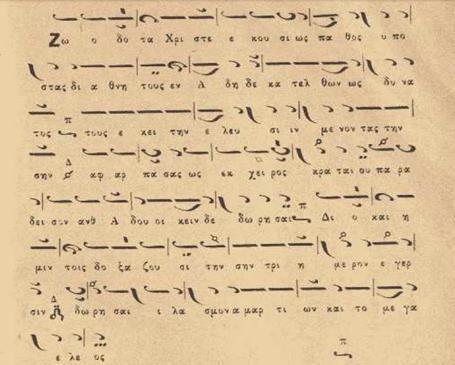 Ζω ο δο τα Χρι στε ε κου σι ως πα θος υ πο
στας δι α θνη τους εν Α δη δε κα τελ θων ως δυ να
τος τους ε κει την ε λευ σι ιν με νον τας την
σην αφ αρ πα σας ως εκ χει ρος κρα ται ου πα ρα
δει σον ανθ Α δου οι κειν δε δω ρη σαι Δι ο και η
μιν τοις δο ξα ζου σι την σην τρι η με ρον ε γερ
σιν δω ρη σαι ι λα σμον α μαρ τι ων και το με γα
ε λε ος